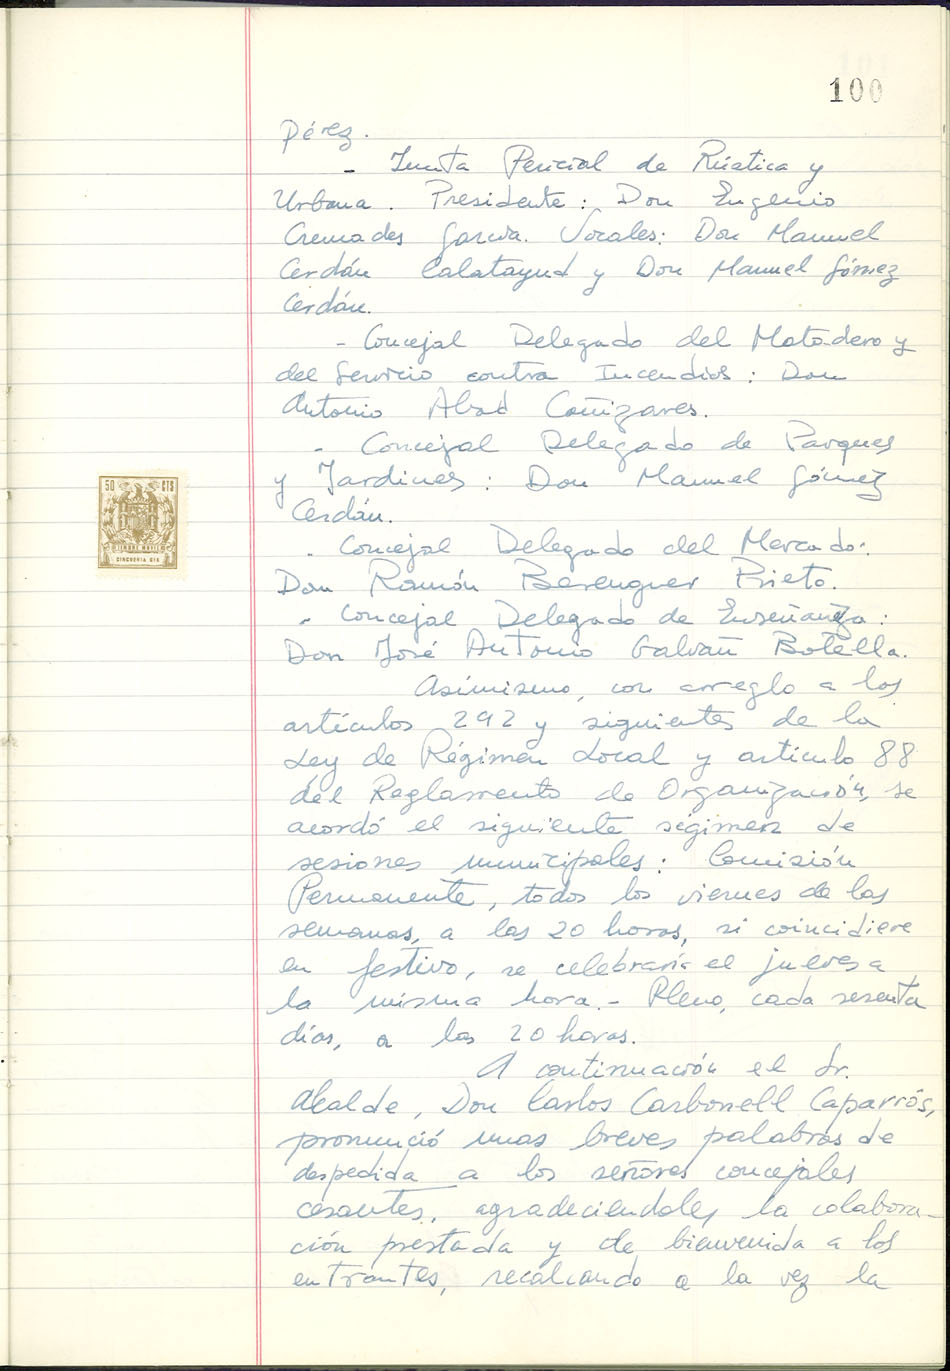 100
Pérez.
- Junta Pericial de Rústica y
Urbana. Presidente: Don Eugenio
Cremades García. Vocales: Don Manuel
Cerdán Calatayud y Don Manuel Gómez
Cerdán.
- Concejal Delegado del Matadero y
del Servicio contra Incendios: Don
Antonio Abad Cañizares.
- Concejal Delegado de Parques
y Jardines: Don Manuel Gómez
Cerdán.
- Concejal Delegado del Mercado:
Don Ramón Berenguer Prieto.
- Concejal Delegado de Enseñanza:
Don José Antonio Galvañ Botella.
Asimismo, con arreglo a los
artículos 292 y siguientes de la
Ley de Régimen Local y artículo 88
del Reglamento de Organización, se
acordó el siguiente régimen de
sesiones municipales: Comisión
Permanente, todos los viernes de las
semanas, a las 20 horas, si coincidiere
en festivo, se celebraría el jueves a
la misma hora.- Pleno, cada sesenta
días, a las 20 horas.
A continuación el Sr.
Alcalde, Don Carlos Carbonell Caparrós,
pronunció unas breves palabras de
despedida a los señores concejales
cesantes, agradeciendoles la colabora-
ción prestada y de bienvenida a los
entrantes, recalcando a la vez la
50 CTS
TIMBRE MOVIL
CINCUENTA CTS